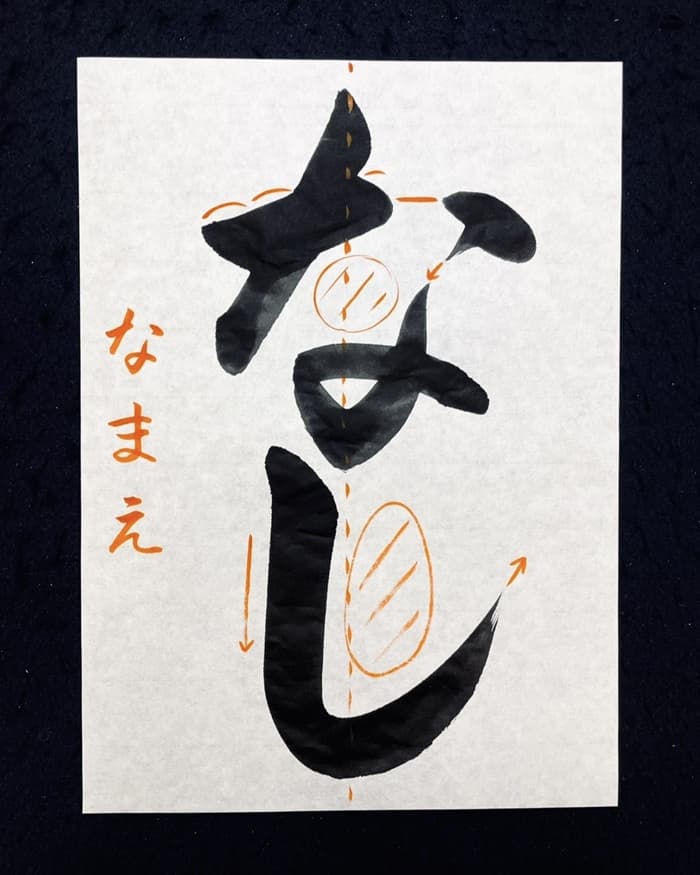 なし
なまえ